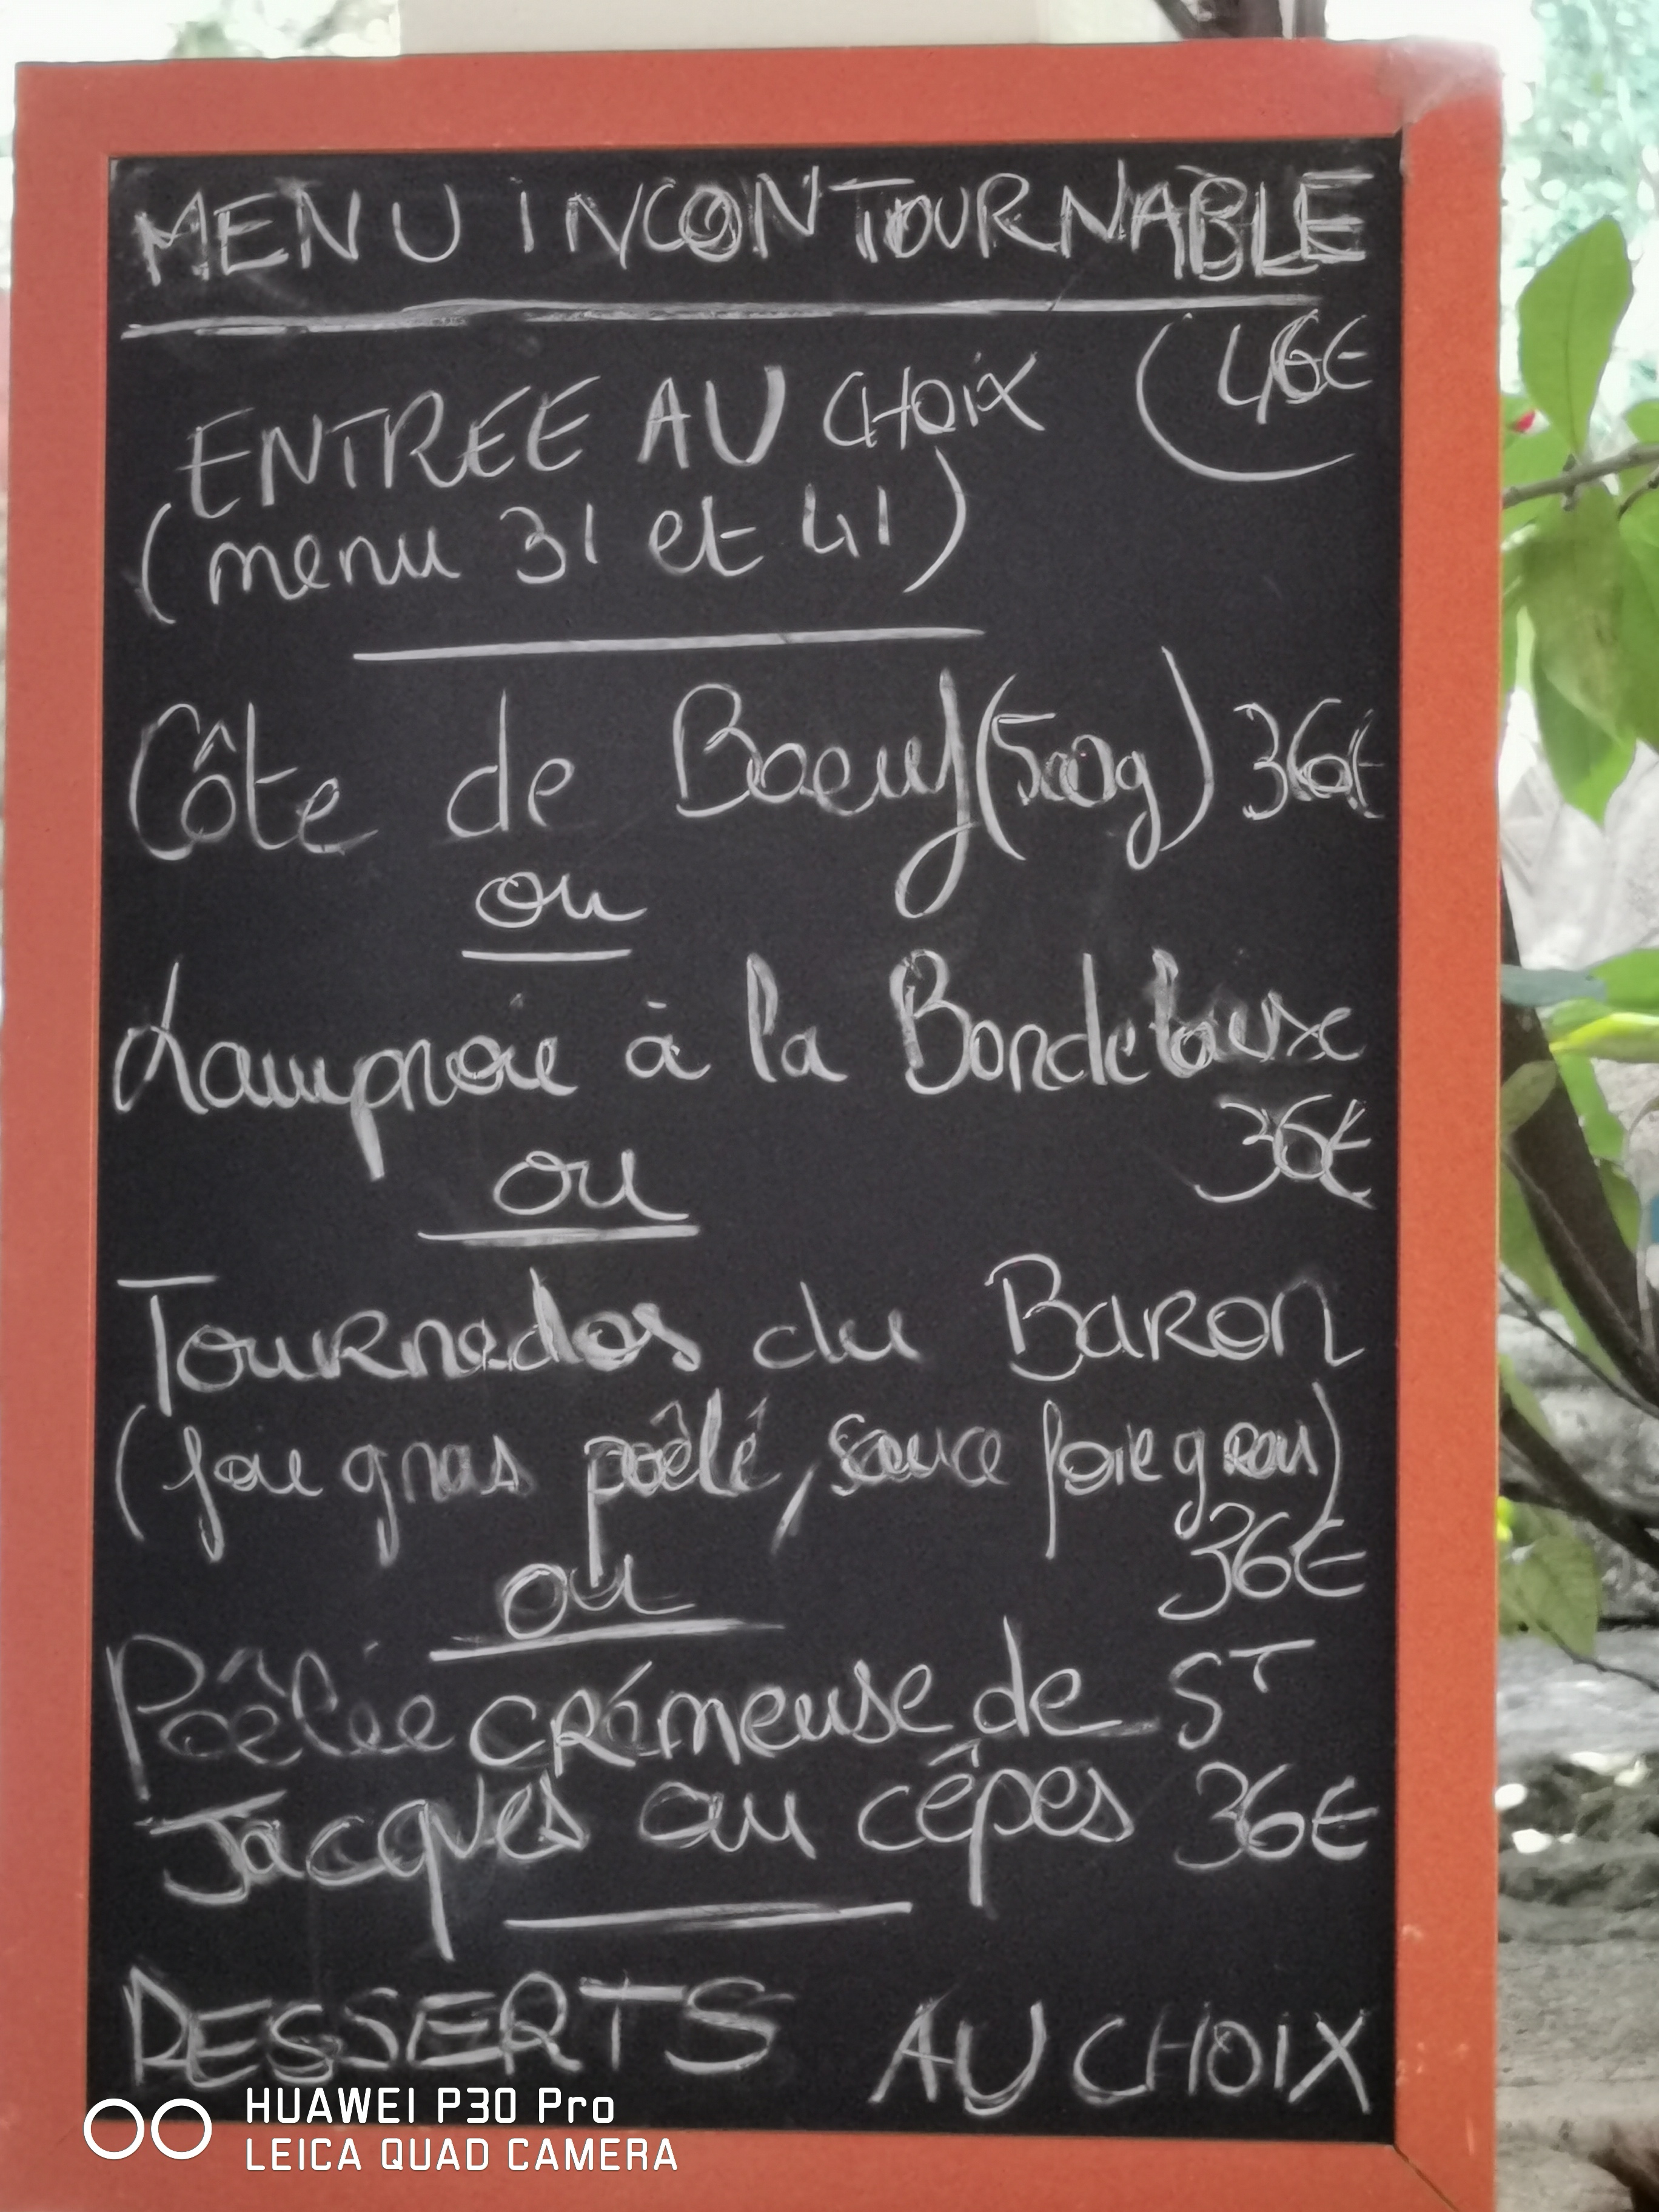 MENU INCONTOURNABLE
(46€
ENTREE AU CHOIX
(menu 31 et 41)
Côte de Boeuf (500g) 36€
ou
Lamproie à la Bordelaise
36€
ou
Tournedos du Baron
(foie gras poêlé, sauce foie gras)
36€
ou
Poêlée crémeuse de ST
Jacques au cêpes 36€
DESSERTS AU CHOIX
HUAWEI P30 Pro
LEICA QUAD CAMERA